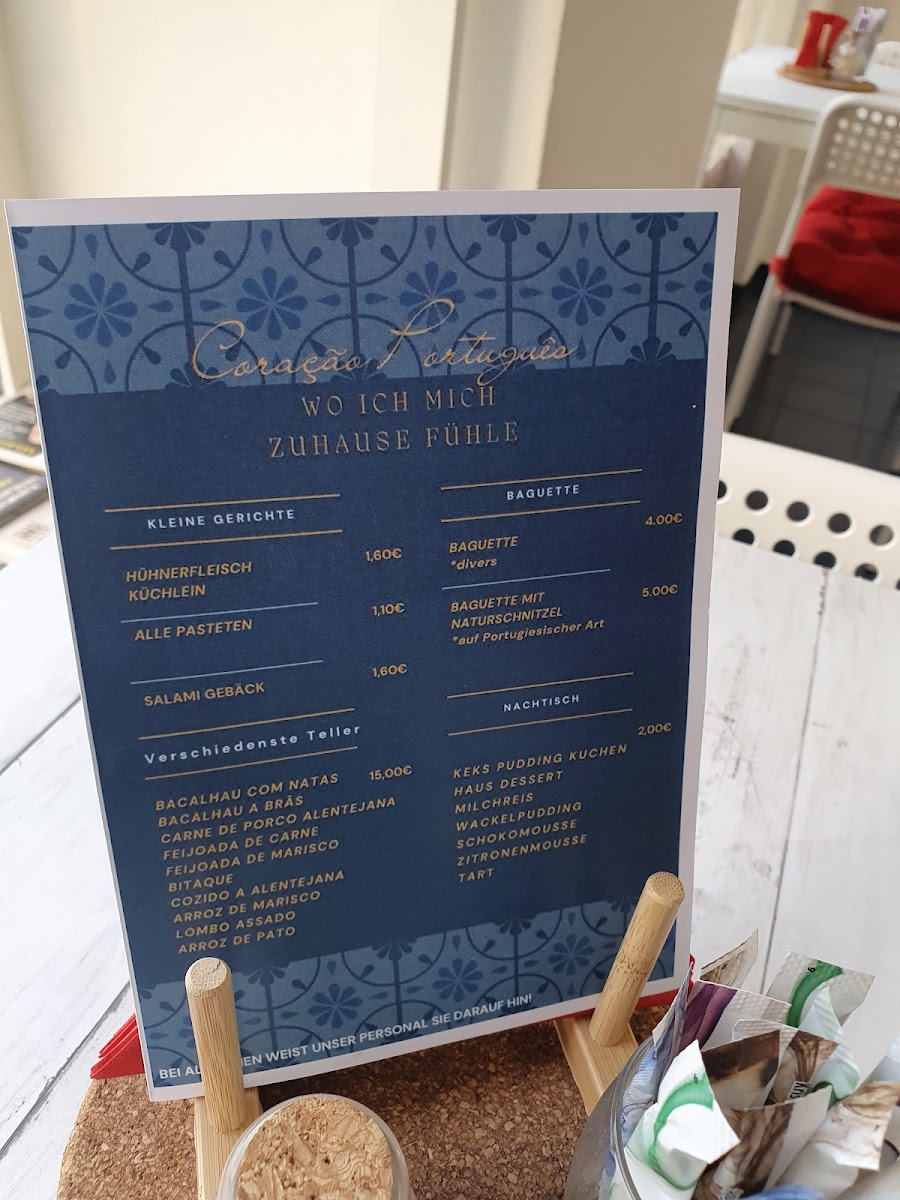 Coração Português
WO ICH MICH
ZUHAUSE FÜHLE
KLEINE GERICHTE
HÜHNERFLEISCH
KÜCHLEIN
1,60€
ALLE PASTETEN
1,10€
SALAMI GEBÄCK
1,60€
Verschiedenste Teller
BACALHAU COM NATAS 15,00€
BACALHAU A BRÁS
CARNE DE PORCO ALENTEJANA
FEIJOADA DE CARNE
FEIJOADA DE MARISCO
BITAQUE
COZIDO A ALENTEJANA
ARROZ DE MARISCO
LOMBO ASSADO
ARROZ DE PATO
BAGUETTE
4.00€
BAGUETTE
*divers
5.00€
BAGUETTE MIT
NATURSCHNITZEL
*auf Portugiesischer Art
NACHTISCH
2,00€
KEKS PUDDING KUCHEN
HAUS DESSERT
MILCHREIS
WACKELPUDDING
SCHOKOMOUSSE
ZITRONENMOUSSE
TART
BEI WEIST UNSER PERSONAL SIE DARAUF HIN!